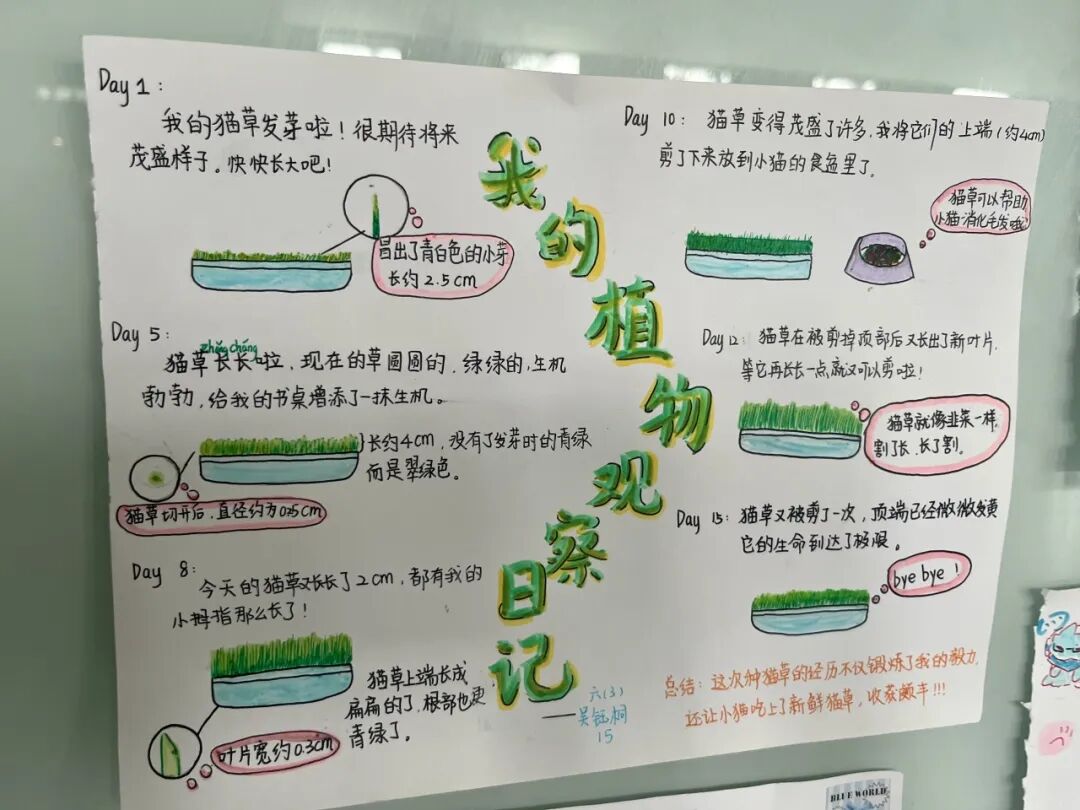 我的植物观察日记
——六(3)
吴钰桐
15
Day 1:
我的猫草发芽啦！很期待将来
茂盛样子。快快长大吧！
冒出了青白色的小芽
长约2.5cm
Day 5:
zhǎng cháng
猫草长长啦，现在的草圆圆的，绿绿的，生机
勃勃，给我的书桌增添了一抹生机。
长约4cm，没有了发芽时的青绿
而是翠绿色。
猫草切开后，直径约为0.25cm
Day 8:
今天的猫草又长长了2cm，都有我的
小拇指那么长了！
猫草上端长成
扁扁的了，根部也更
青绿了。
叶片宽约0.3cm
Day 10: 猫草变得茂盛了许多，我将它们的上端(约4cm)
剪了下来放到小猫的食盆里了。
猫草可以帮助
小猫消化毛发哦
Day 12: 猫草在被剪掉顶部后又长出了新叶片，
等它再长长一点就又可以剪啦！
猫草就像韭菜一样，
割了长，长了割。
Day 15: 猫草又被剪了一次，顶端已经微微发黄
它的生命到达了极限。
bye bye！
总结：这次种猫草的经历不仅锻炼了我的毅力，
还让小猫吃上了新鲜猫草，收获颇丰!!!
BLUE WORLD